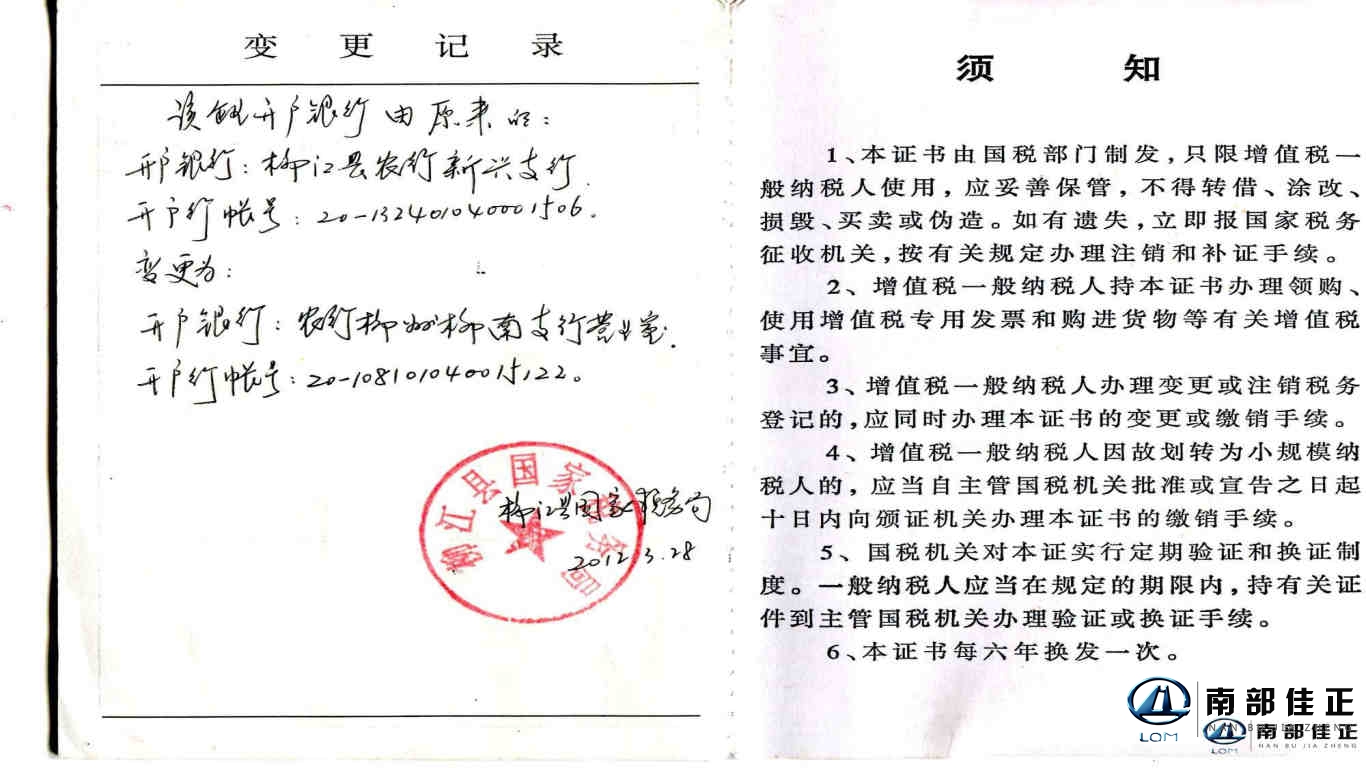 变更记录
该企业开户银行由原来的：
开户银行：柳江县农行新兴支行.
开户行帐号：20-132401040001506。
变更为：
开户银行：农行柳州柳南支行营业室.
开户行帐号：20-108101040015122。
柳江县国家税务局
柳江县国家税务局
2012.3.28
须知
1、本证书由国税部门制发，只限增值税一
般纳税人使用，应妥善保管，不得转借、涂改、
损毁、买卖或伪造。如有遗失，立即报国家税务
征收机关，按有关规定办理注销和补证手续。
2、增值税一般纳税人持本证书办理领购、
使用增值税专用发票和购进货物等有关增值税
事宜。
3、增值税一般纳税人办理变更或注销税务
登记的，应同时办理本证书的变更或缴销手续。
4、增值税一般纳税人因故划转为小规模纳
税人的，应当自主管国税机关批准或宣告之日起
十日内向颁证机关办理本证书的缴销手续。
5、国税机关对本证实行定期验证和换证制
度。一般纳税人应当在规定的期限内，持有关证
件到主管国税机关办理验证或换证手续。
6、本证书每六年换发一次。
LOM
南部佳正
NAN BU JIA ZHENG
LOM
南部佳正
NAN BU JIA ZHENG